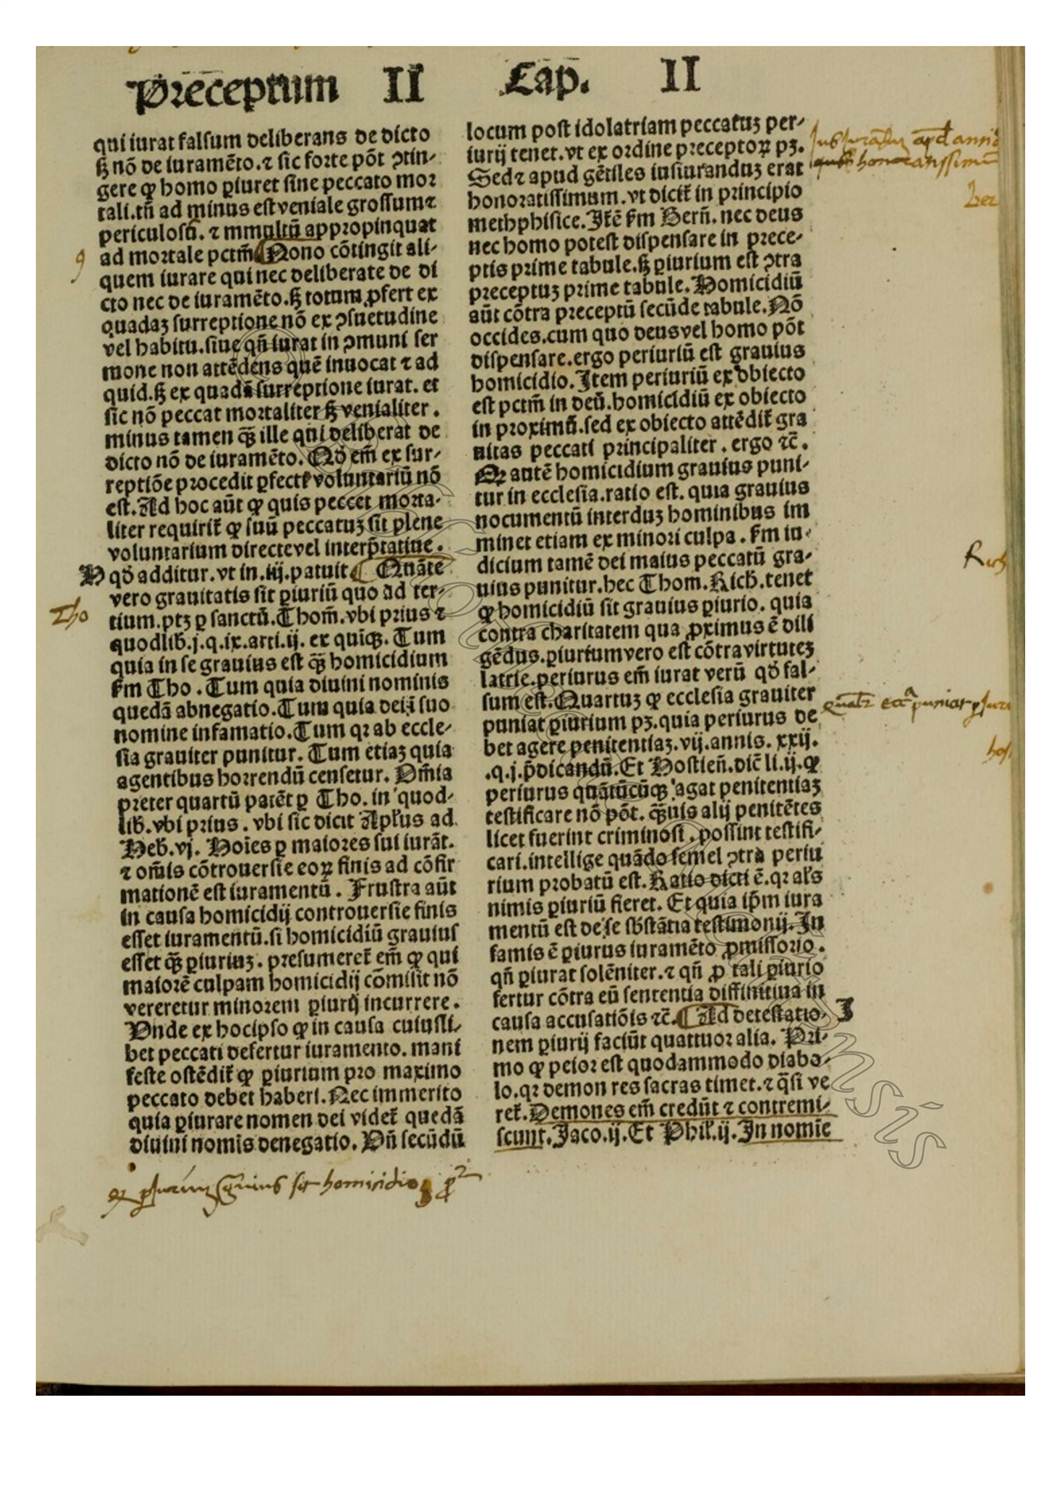 Preceptum II Cap. II
qui iurat falsum deliberans de dicto
sꝫ nō de iuramēto.⁊ sic forte pōt ↄtin-
gere ꝙ homo ꝑiuret sine peccato mor
tali.tñ ad minus est veniale grossum⁊
periculosū. ⁊ mmultū appropinquat
ad mortale pctm̄ ¶ Nono cōtingit ali-
quem iurare qui nec deliberate de di
cto nec de iuramēto.sꝫ totum ꝓfert ex
quadaꝫ surreptione nō ex ↄsuetudine
vel habitu.siue qn̄ iurat in ↄmuni ser
mone non attēdens quē inuocat ⁊ ad
quid.sꝫ ex quadā surreptione iurat. et
sic nō peccat mortaliter sꝫ venialiter.
minus tamen qꝫ̄ ille qui deliberat de
dicto nō de iuramēto. Qđ em̄ ex sur-
reptiōe procedit ꝑfecte voluntariū nō
est. Ad hoc aūt ꝙ quis peccet morta-
liter requirit̄ ꝙ suū peccatuꝫ sit plene
voluntarium directevel interp̄tatiue.
H qđ additur.vt in.iij.patuit ¶ Quāte
vero grauitatis sit ꝑiuriū quo ad ter-
tium.ptꝫ ꝑ sanctū.Thom̄.vbi prius ⁊
quodlib.j.q.ix.arti.ij. ex quiqꝫ. Tum
quia in se grauius est qꝫ̄ homicidium
fm̄ Tho. Tum quia diuini nominis
quedā abnegatio.Tum quia dei:i suo
nomine infamatio.Tum qꝛ ab eccle-
sia grauiter punitur. Tum etiaꝫ quia
agentibus horrendū censetur. Om̄ia
preter quartū patēt ꝑ Tho. in quod-
lib.vbi prius. vbi sic dicit Apl̄us ad
Heb.vj. Hoīes ꝑ maiores sui iurāt.
⁊ om̄is cōtrouersie eoꝝ finis ad cōfir
mationē est iuramentū. Frustra aūt
in causa homicidij controuersie finis
esset iuramentū.si homicidiū grauius
esset qꝫ̄ ꝑiuriuꝫ. presumeret̄ em̄ ꝙ qui
maiorē culpam homicidij cōmisit nō
vereretur minorem ꝑiurij incurrere.
Vnde ex hocipso ꝙ in causa cuiusli-
bet peccati defertur iuramento. mani
feste ostēdit̄ ꝙ ꝑiurium pro maximo
peccato debet haberi.Nec immerito
quia ꝑiurare nomen dei videt̄ quedā
diuini nomīs denegatio. Vn̄ secūdū
locum post idolatriam peccatuꝫ per-
iurij tenet.vt ex ordine preceptoꝝ pꝫ.
Sed⁊ apud gētiles iusiuranduꝫ erat
honoratissimum.vt dicit̄ in principio
methphisice.Itē fm̄ Bern̄. nec deus
nec homo potest dispensare in prece-
ptis prime tabule.sꝫ ꝑiurium est ↄtra
preceptuꝫ prime tabule.Homicidiū
aūt cōtra preceptū secūde tabule.Nō
occides.cum quo deusvel homo pōt
dispensare.ergo periuriū est grauius
homicidio.Item periuriū ex obiecto
est pctm̄ in deū.homicidiū ex obiecto
in proximū.sed ex obiecto attēdit̄ gra
uitas peccati principaliter. ergo ⁊c̄.
Qꝛ autē homicidium grauius puni-
tur in ecclesia.ratio est. quia grauius
nocumentū interduꝫ hominibus im
minet etiam ex minori culpa. fm̄ iu-
dicium tamē dei maius peccatū gra-
uius punitur.hec Thom.Rich.tenet
ꝙ homicidiū sit grauius ꝑiurio. quia
contra charitatem qua ꝓximus ē dili
gēdus.ꝑiurium vero est cōtra virtuteꝫ
latrie.periurus em̄ iurat verū qđ fal-
sum est.Quartuꝫ ꝙ ecclesia grauiter
puniat ꝑiurium pꝫ.quia periurus de
bet agere penitentiaꝫ.vij.annis. xxij.
.q.j.p̄dicandū.Et Hostien̄.dic̄ li.ij.ꝙ
periurus quātūcūqꝫ agat penitentiaꝫ
testificare nō pōt. qꝫ̄uis alij penitētes
licet fuerint criminosi. possint testifi-
cari.intellige quādo semel ↄtra periu
rium probatū est.Ratio dicti ē.qꝛ al's
nimis ꝑiuriū fieret. Et quia ip̄m iura
mentū est de se sb̄stātia testimonij.In
famis ē ꝑiurus iuramēto ꝓmissorio.
qn̄ ꝑiurat solēniter.⁊ qn̄ ꝓ tali ꝑiurio
fertur cōtra eū sententia diffinitiua in
causa accusatiōis ⁊c̄. ¶ Ad detestatio- J
nem ꝑiurij faciūt quattuor alia. Pri-
mo ꝙ peior est quodammodo diabo-
lo.qꝛ demon res sacras timet.⁊ q̄si ve
ret̄.Demones em̄ credūt ⁊ contremi-
scunt.Jaco.ij.Et Phil̄.ij.In nomīe
Tho
qꝛ ꝑiuriuꝫ grauius sit homicidio